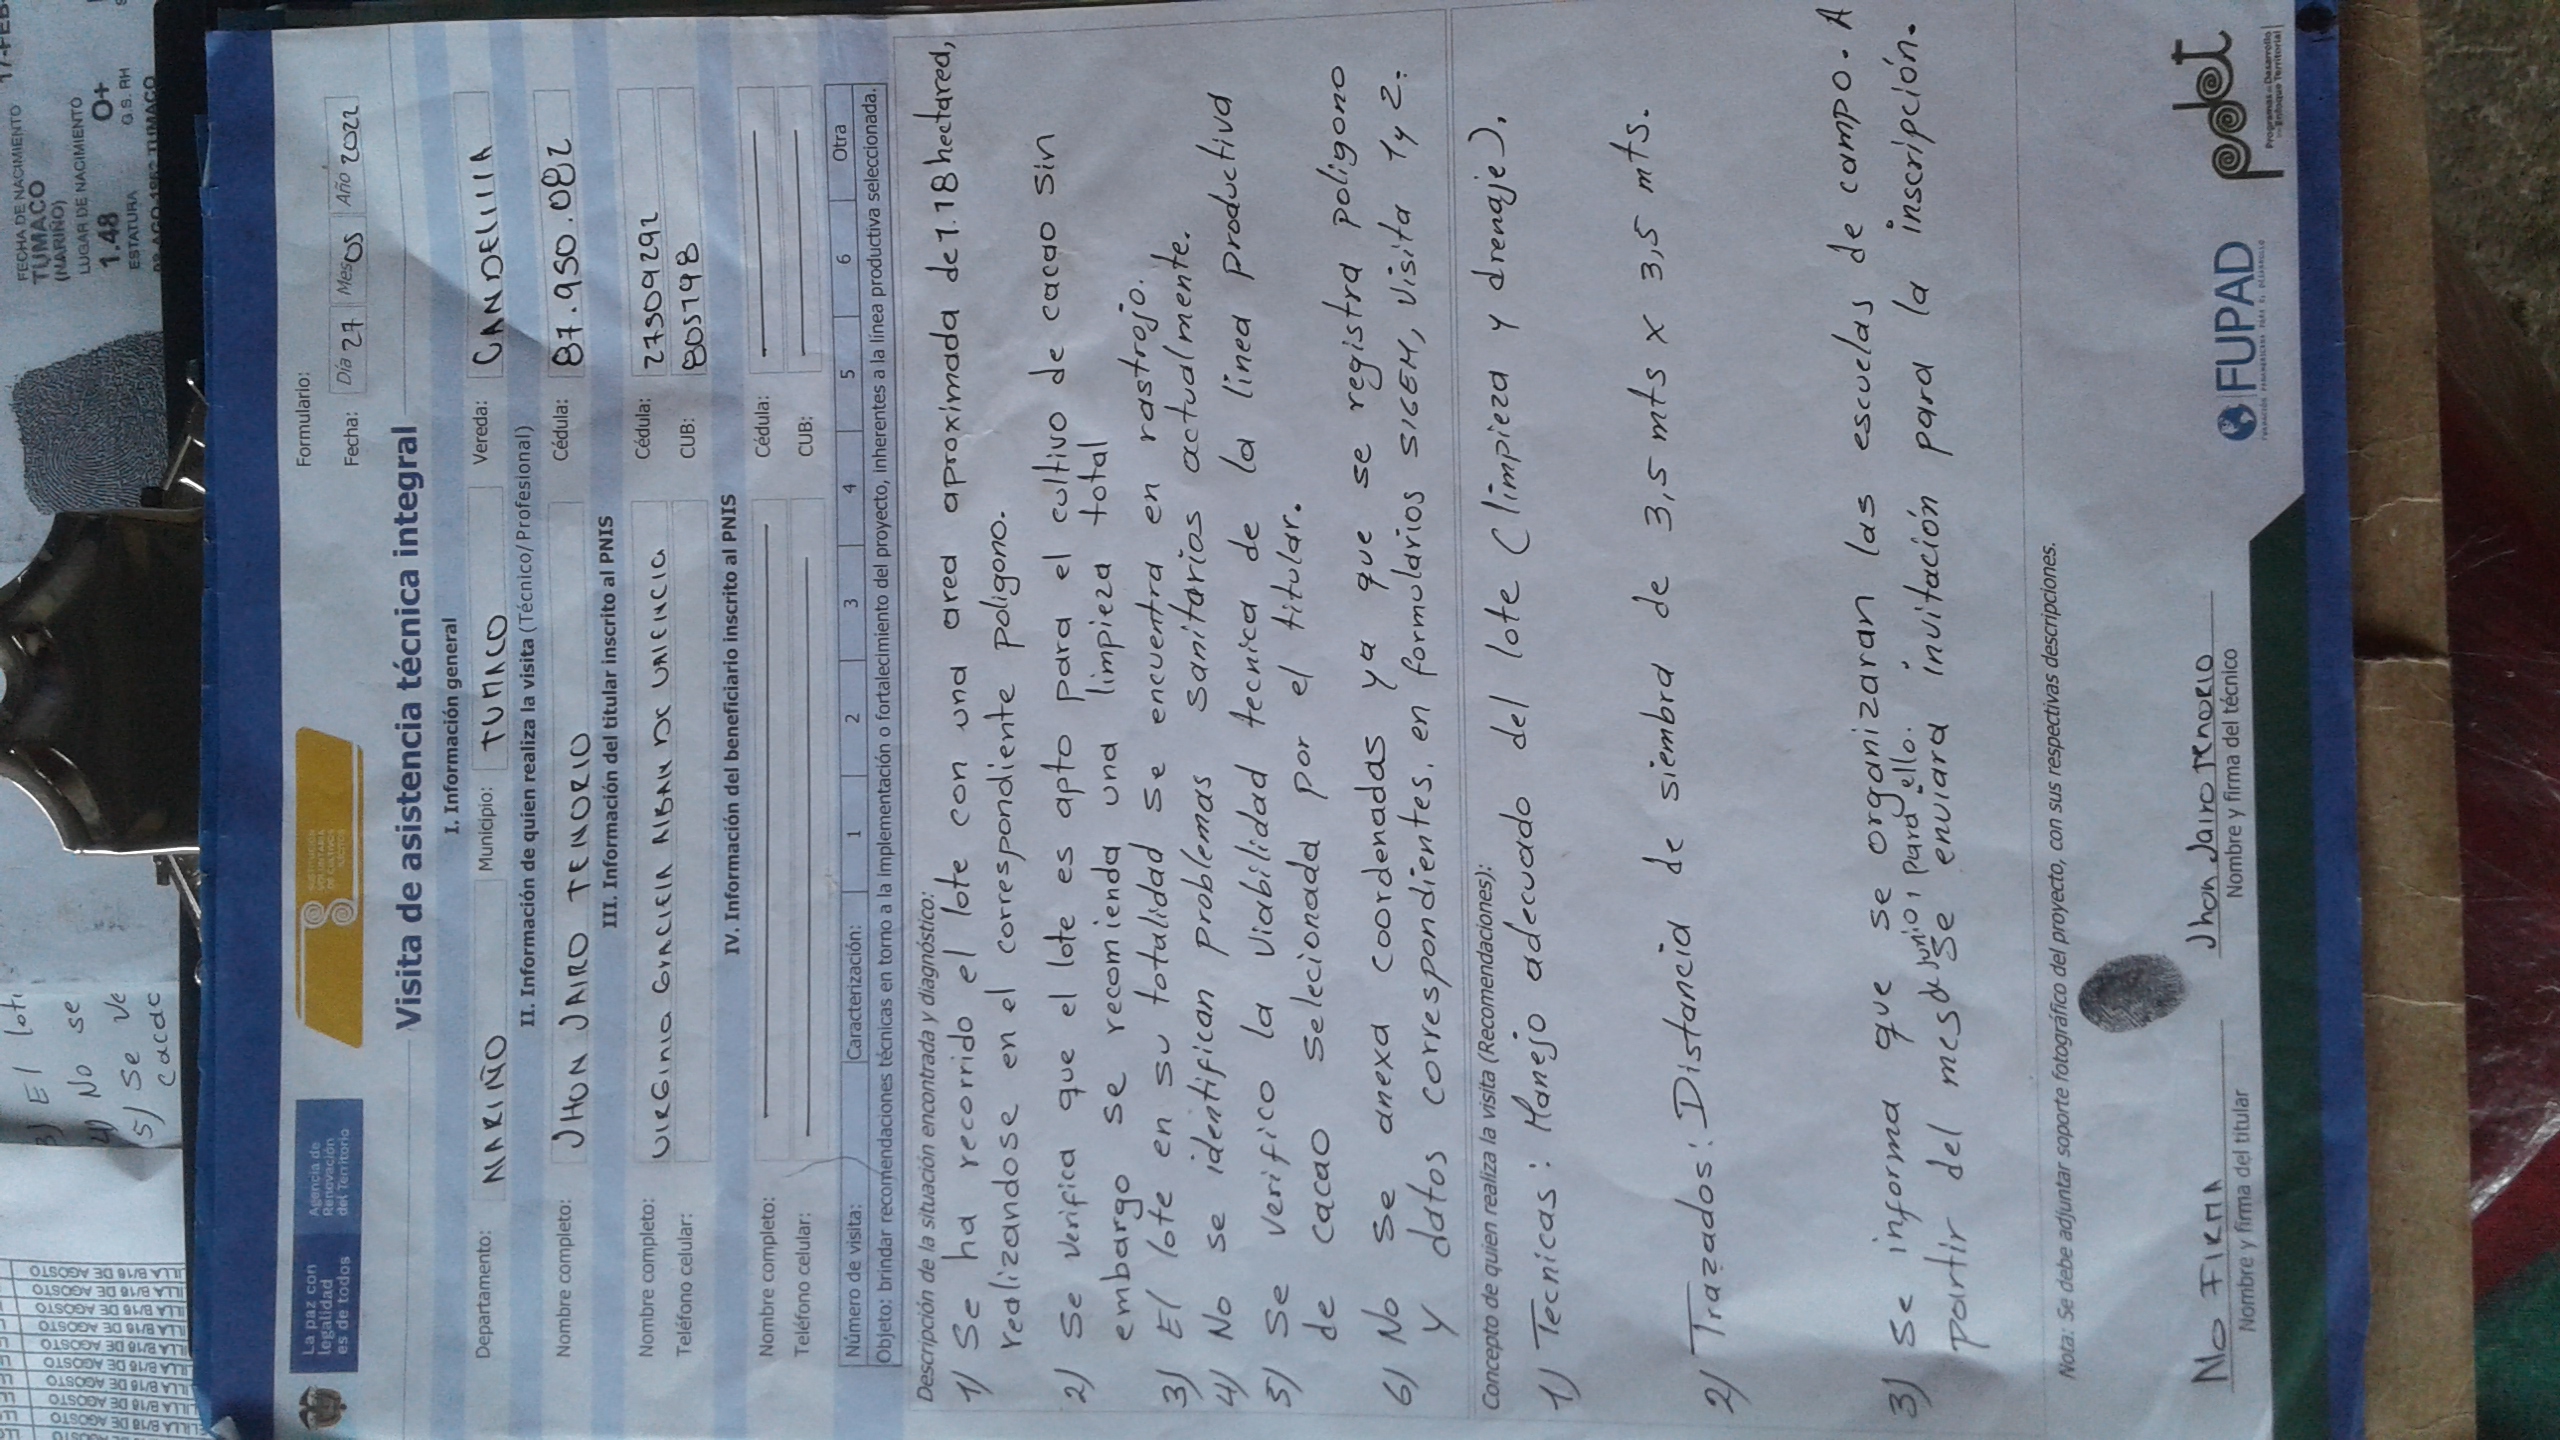 La paz con
legalidad
es de todos
Agencia de
Renovación
del Territorio
SUSTITUCIÓN
VOLUNTARIA
DE CULTIVOS
ILÍCITOS
Formulario:
Fecha: Día 27 Mes 05 Año 2022
Visita de asistencia técnica integral
I. Información general
Departamento: NARIÑO Municipio: TUMACO Vereda: CANDELILLA
II. Información de quien realiza la visita (Técnico/Profesional)
Nombre completo: JHON JAIRO TENORIO Cédula: 87.950.082
III. Información del titular inscrito al PNIS
Nombre completo: VIRGINIA GRACIELA ALBAN DE VALENCIA Cédula: 27509292
Teléfono celular: CUB: 805798
IV. Información del beneficiario inscrito al PNIS
Nombre completo: Cédula:
Teléfono celular: CUB:
Número de visita: Caracterización: 1 2 3 4 5 6 Otra
Objeto: brindar recomendaciones técnicas en torno a la implementación o fortalecimiento del proyecto, inherentes a la línea productiva seleccionada.
Descripción de la situación encontrada y diagnóstico:
1) Se ha recorrido el lote con una area aproximada de 1.18 hectarea,
realizandose en el correspondiente poligono.
2) Se verifica que el lote es apto para el cultivo de cacao sin
embargo se recomienda una limpieza total
3) El lote en su totalidad se encuentra en rastrojo.
4) No se identifican problemas sanitarios actualmente.
5) Se verifico la viabilidad tecnica de la linea productiva
de cacao selecionada por el titular.
6) No se anexa coordenadas ya que se registra poligono
y datos correspondientes. en formularios SIGEM, visita 1 y 2.
Concepto de quien realiza la visita (Recomendaciones):
1) Tecnicas: Manejo adecuado del lote (limpieza y drenaje).
2) Trazados: Distancia de siembra de 3,5 mts x 3,5 mts.
3) Se informa que se organizaran las escuelas de campo. A
partir del mes de junio, para ello.
se enviara invitación para la inscripción.
Nota: Se debe adjuntar soporte fotográfico del proyecto, con sus respectivas descripciones.
No FIRMA
Nombre y firma del titular
Jhon Jairo TENORIO
Nombre y firma del técnico
FUPAD
pdet
Programas de Desarrollo
con Enfoque Territorial
FECHA DE NACIMIENTO
TUMACO
(NARIÑO)
LUGAR DE NACIMIENTO
1.48
ESTATURA
O+
G.S. RH
3) El lot
4) No se
5) Se ve
cacao